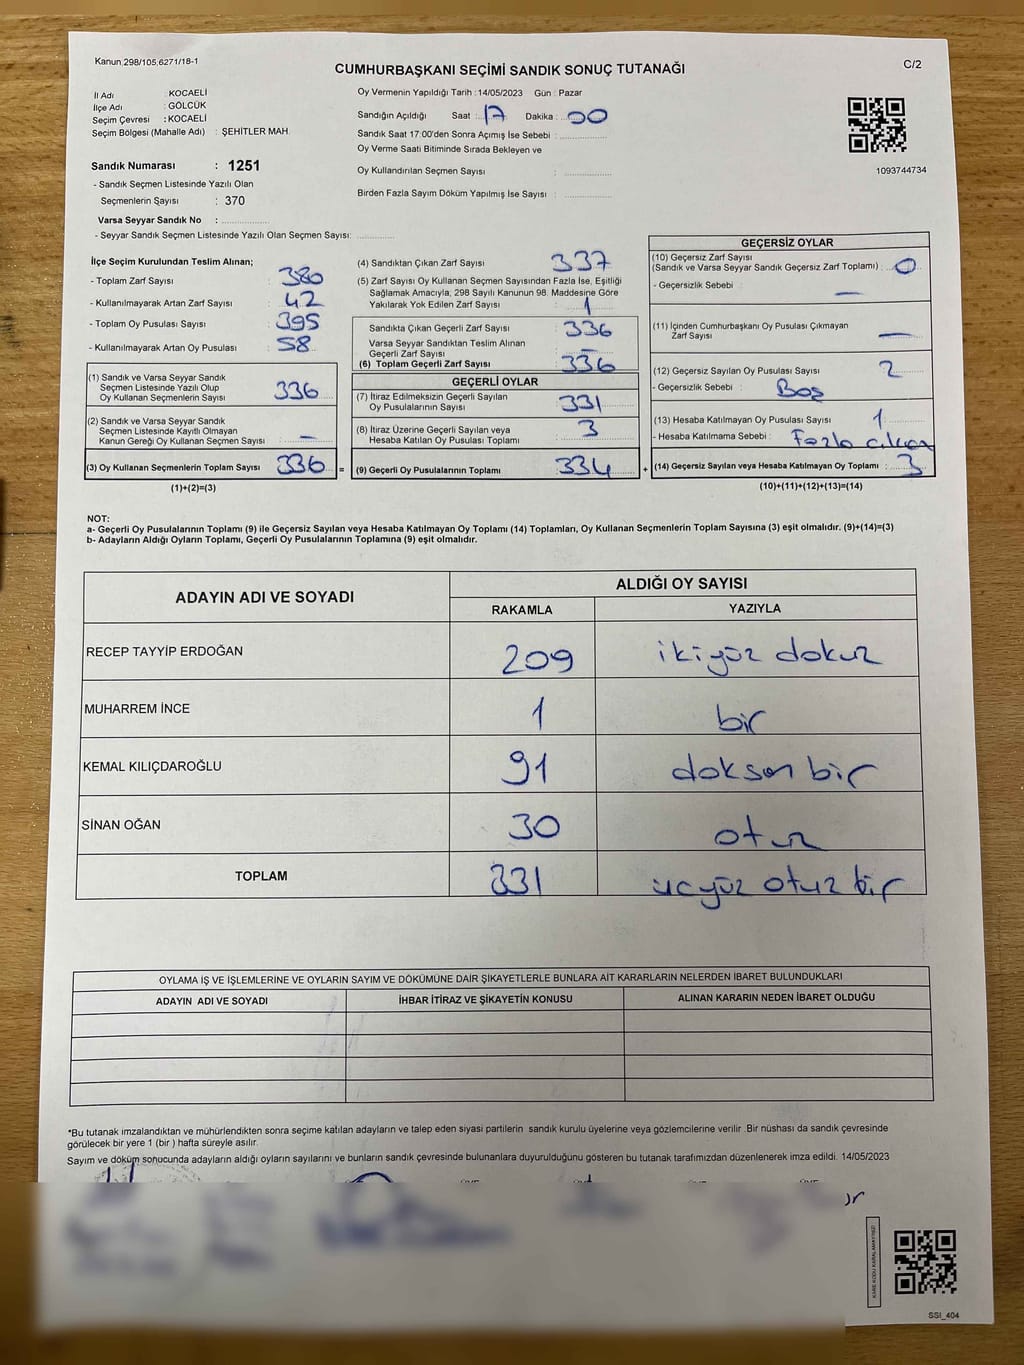 Kanun 298/105,6271/18-1
C/2
CUMHURBAŞKANI SEÇİMİ SANDIK SONUÇ TUTANAĞI
İl Adı : KOCAELİ
İlçe Adı : GÖLCÜK
Seçim Çevresi : KOCAELİ
Seçim Bölgesi (Mahalle Adı) : ŞEHİTLER MAH.
Sandık Numarası : 1251
- Sandık Seçmen Listesinde Yazılı Olan
Seçmenlerin Sayısı : 370
Varsa Seyyar Sandık No :
- Seyyar Sandık Seçmen Listesinde Yazılı Olan Seçmen Sayısı:
Oy Vermenin Yapıldığı Tarih : 14/05/2023 Gün : Pazar
Sandığın Açıldığı Saat : 17 Dakika : 00
Sandık Saat 17:00'den Sonra Açılmış İse Sebebi :
Oy Verme Saati Bitiminde Sırada Bekleyen ve
Oy Kullandırılan Seçmen Sayısı :
Birden Fazla Sayım Döküm Yapılmış İse Sayısı :
1093744734
İlçe Seçim Kurulundan Teslim Alınan;
- Toplam Zarf Sayısı : 380
- Kullanılmayarak Artan Zarf Sayısı : 42
- Toplam Oy Pusulası Sayısı : 395
- Kullanılmayarak Artan Oy Pusulası : 58
(1) Sandık ve Varsa Seyyar Sandık
Seçmen Listesinde Yazılı Olup
Oy Kullanan Seçmenlerin Sayısı : 336
(2) Sandık ve Varsa Seyyar Sandık
Seçmen Listesinde Kayıtlı Olmayan
Kanun Gereği Oy Kullanan Seçmen Sayısı : —
(3) Oy Kullanan Seçmenlerin Toplam Sayısı : 336 =
(1)+(2)=(3)
(4) Sandıktan Çıkan Zarf Sayısı : 337
(5) Zarf Sayısı Oy Kullanan Seçmen Sayısından Fazla İse, Eşitliği
Sağlamak Amacıyla, 298 Sayılı Kanunun 98. Maddesine Göre
Yakılarak Yok Edilen Zarf Sayısı : 1
Sandıkta Çıkan Geçerli Zarf Sayısı : 336
Varsa Seyyar Sandıktan Teslim Alınan
Geçerli Zarf Sayısı : —
(6) Toplam Geçerli Zarf Sayısı : 336
GEÇERLİ OYLAR
(7) İtiraz Edilmeksizin Geçerli Sayılan
Oy Pusulalarının Sayısı : 331
(8) İtiraz Üzerine Geçerli Sayılan veya
Hesaba Katılan Oy Pusulası Toplamı : 3
(9) Geçerli Oy Pusulalarının Toplamı : 334 +
GEÇERSİZ OYLAR
(10) Geçersiz Zarf Sayısı
(Sandık ve Varsa Seyyar Sandık Geçersiz Zarf Toplamı) : 0
- Geçersizlik Sebebi : —
(11) İçinden Cumhurbaşkanı Oy Pusulası Çıkmayan
Zarf Sayısı : —
(12) Geçersiz Sayılan Oy Pusulası Sayısı : 2
- Geçersizlik Sebebi : Boş
(13) Hesaba Katılmayan Oy Pusulası Sayısı : 1
- Hesaba Katılmama Sebebi : Fazla çıkan
(14) Geçersiz Sayılan veya Hesaba Katılmayan Oy Toplamı : 3
(10)+(11)+(12)+(13)=(14)
NOT:
a- Geçerli Oy Pusulalarının Toplamı (9) ile Geçersiz Sayılan veya Hesaba Katılmayan Oy Toplamı (14) Toplamları, Oy Kullanan Seçmenlerin Toplam Sayısına (3) eşit olmalıdır. (9)+(14)=(3)
b- Adayların Aldığı Oyların Toplamı, Geçerli Oy Pusulalarının Toplamına (9) eşit olmalıdır.
ADAYIN ADI VE SOYADI ALDIĞI OY SAYISI
RAKAMLA YAZIYLA
RECEP TAYYİP ERDOĞAN 209 ikiyüz dokuz
MUHARREM İNCE 1 bir
KEMAL KILIÇDAROĞLU 91 doksan bir
SİNAN OĞAN 30 otuz
TOPLAM 331 üçyüz otuz bir
OYLAMA İŞ VE İŞLEMLERİNE VE OYLARIN SAYIM VE DÖKÜMÜNE DAİR ŞİKAYETLERLE BUNLARA AİT KARARLARIN NELERDEN İBARET BULUNDUKLARI
ADAYIN ADI VE SOYADI İHBAR İTİRAZ VE ŞİKAYETİN KONUSU ALINAN KARARIN NEDEN İBARET OLDUĞU
*Bu tutanak imzalandıktan ve mühürlendikten sonra seçime katılan adayların ve talep eden siyasi partilerin sandık kurulu üyelerine veya gözlemcilerine verilir .Bir nüshası da sandık çevresinde
görülecek bir yere 1 (bir ) hafta süreyle asılır.
Sayım ve döküm sonucunda adayların aldığı oyların sayılarını ve bunların sandık çevresinde bulunanlara duyurulduğunu gösteren bu tutanak tarafımızdan düzenlenerek imza edildi. 14/05/2023
KARE KODU KARALAMAYINIZ!
SSI_404